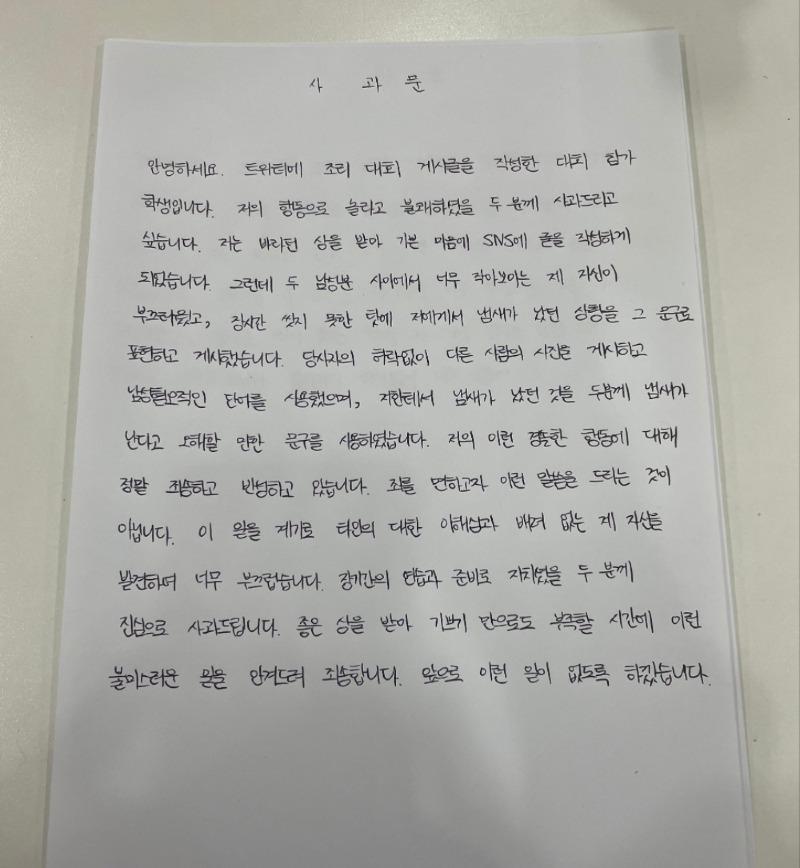 사 과 문
안녕하세요. 트위터에 조리 대회 게시글을 작성한 대회 참가
학생입니다. 저의 행동으로 놀라고 불쾌하였을 두 분께 사과드리고
싶습니다. 저는 바라던 상을 받아 기쁜 마음에 SNS에 글을 작성하게
되었습니다. 그런데 두 남성분 사이에서 너무 작아보이는 제 자신이
부끄러웠고, 장시간 씻지 못한 탓에 저에게서 냄새가 났던 상황을 그 문구로
표현하고 게시했습니다. 당사자의 허락없이 다른 사람의 사진을 게시하고
남성혐오적인 단어를 사용했으며, 저한테서 냄새가 났던 것을 두분께 냄새가
난다고 오해할 만한 문구를 사용하였습니다. 저의 이런 경솔한 행동에 대해
정말 죄송하고 반성하고 있습니다. 죄를 면하고자 이런 말씀을 드리는 것이
아닙니다. 이 일을 계기로 타인의 대한 이해심과 배려 없는 제 자신을
발견하며 너무 부끄럽습니다. 장기간의 연습과 준비로 지치었을 두 분께
진심으로 사과드립니다. 좋은 상을 받아 기쁘기 만으로도 부족할 시간에 이런
불미스러운 일을 안겨드려 죄송합니다. 앞으로 이런 일이 없도록 하겠습니다.